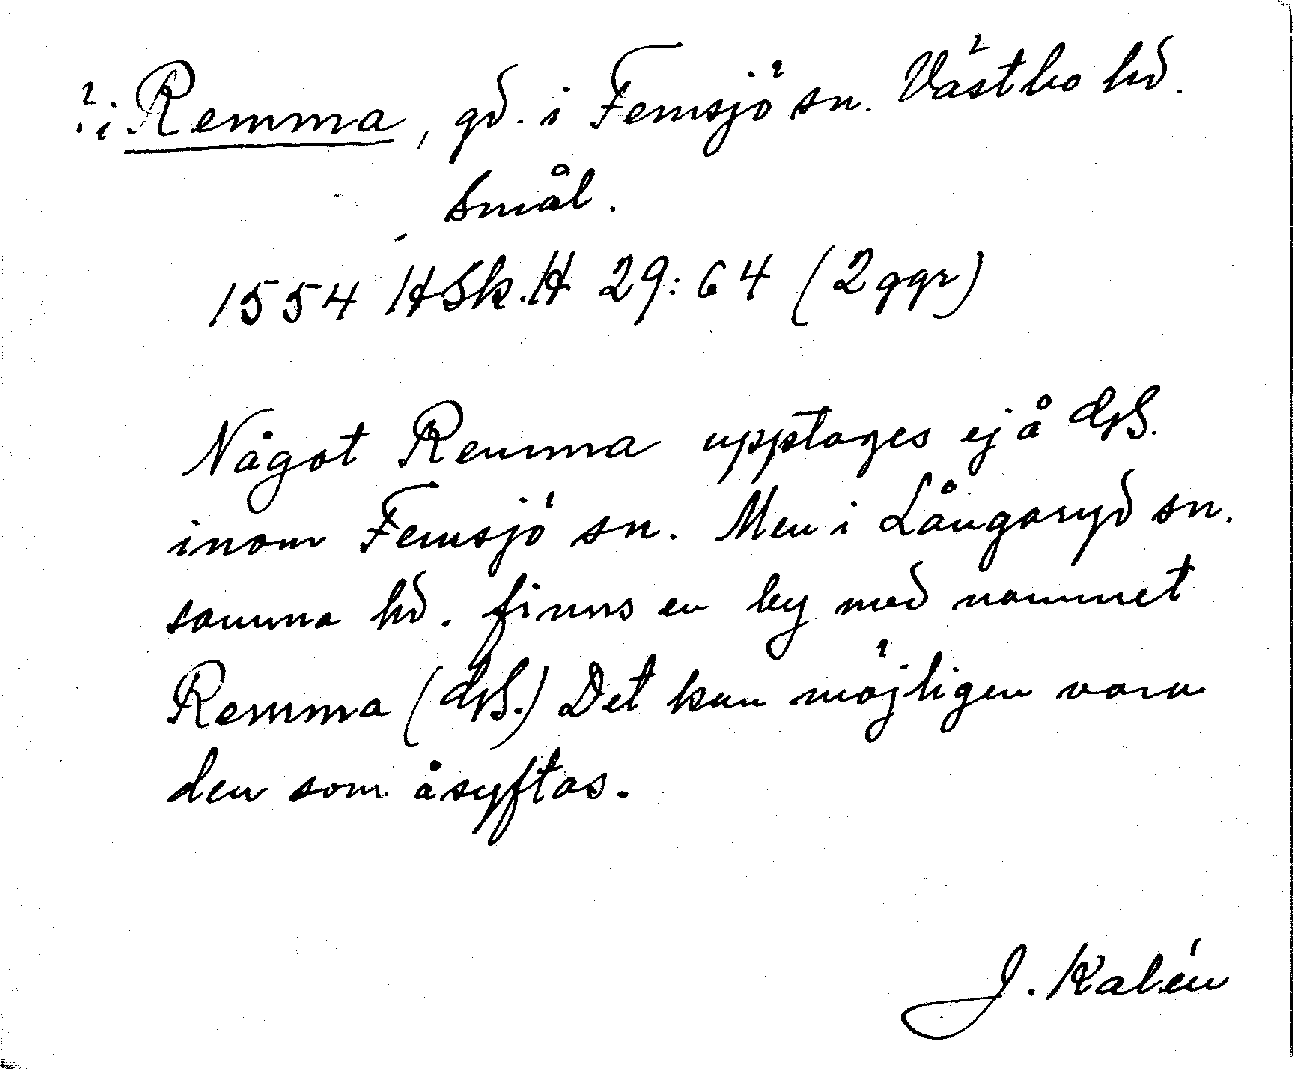 ?i Remma, gd. i Femsjö sn. Västbo hd.
Smål.
1554 HSk.H 29:64 (2 ggr)
Något Remma upptages ej å GS.
inom Femsjö sn. Men i Långaryd sn.
samma hd. finns en by med namnet
Remma (GS.) Det kan möjligen vara
den som åsyftas.
J. Kalén